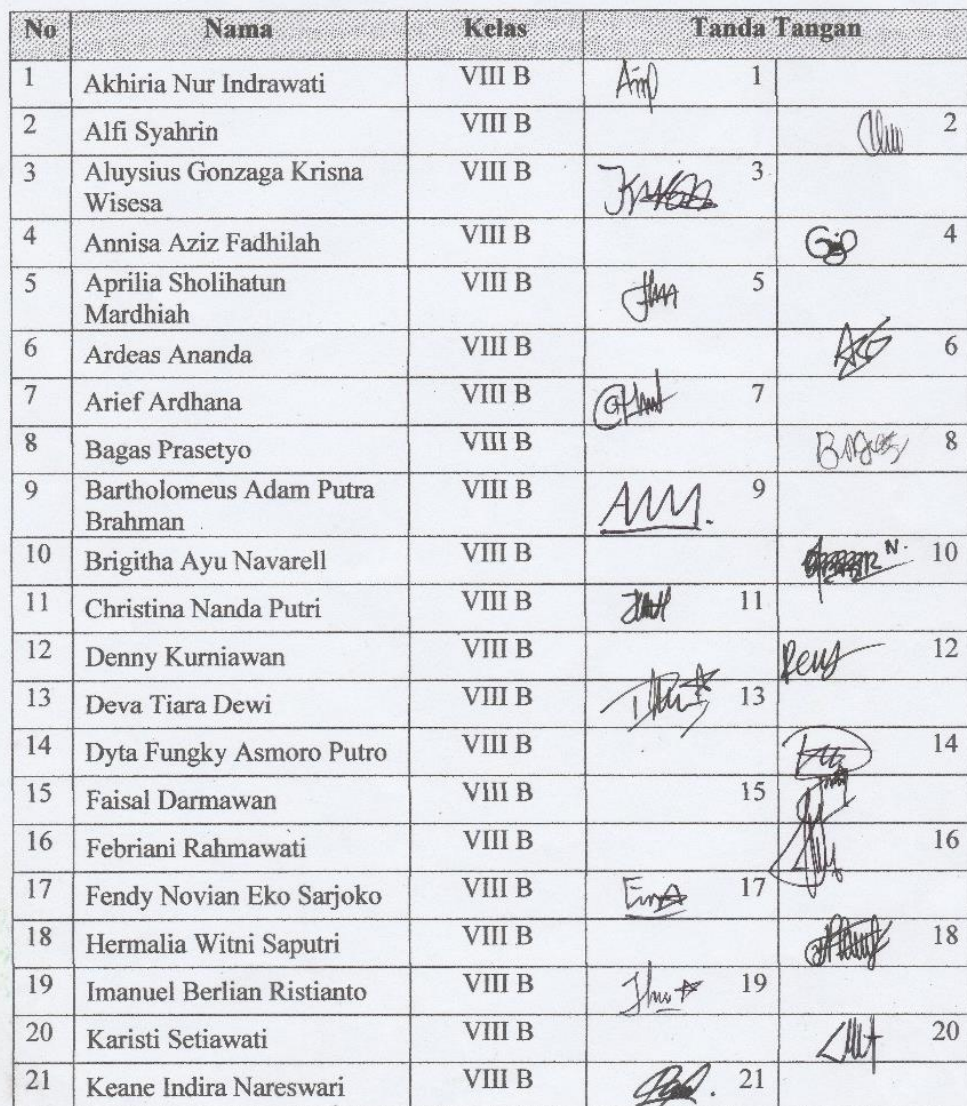 No Nama Kelas Tanda Tangan
1 Akhiria Nur Indrawati VIII B 1
2 Alfi Syahrin VIII B 2
3 Aluysius Gonzaga Krisna VIII B 3
Wisesa
4 Annisa Aziz Fadhilah VIII B 4
5 Aprilia Sholihatun VIII B 5
Mardhiah
6 Ardeas Ananda VIII B 6
7 Arief Ardhana VIII B 7
8 Bagas Prasetyo VIII B 8
9 Bartholomeus Adam Putra VIII B 9
Brahman
10 Brigitha Ayu Navarell VIII B 10
11 Christina Nanda Putri VIII B 11
12 Denny Kurniawan VIII B 12
13 Deva Tiara Dewi VIII B 13
14 Dyta Fungky Asmoro Putro VIII B 14
15 Faisal Darmawan VIII B 15
16 Febriani Rahmawati VIII B 16
17 Fendy Novian Eko Sarjoko VIII B 17
18 Hermalia Witni Saputri VIII B 18
19 Imanuel Berlian Ristianto VIII B 19
20 Karisti Setiawati VIII B 20
21 Keane Indira Nareswari VIII B 21